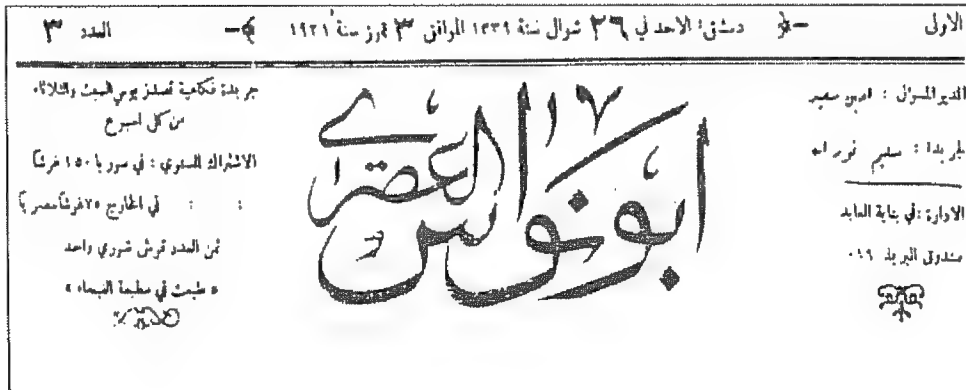 الاولى دمشق: الاحد في ٢٦ شوال سنة ١٣٣٩ الموافق ٣ تموز سنة ١٩٢١ العدد ٣
المدير المسؤل : امين سعيد
سليم
الادارة : في بناية العابد
صندوق البريد ٠١٩
١٧
ابو نواس العصري
جريدة فكاهية تصدر يومي السبت والثلاثاء
من كل اسبوع
الاشتراك السنوي : في سوريا ١٥٠ غرشاً
: : في الخارج ٧٥ غرشاً مصرياً
ثمن العدد غرش سوري واحد
« طبعت في مطبعة الفيحاء »